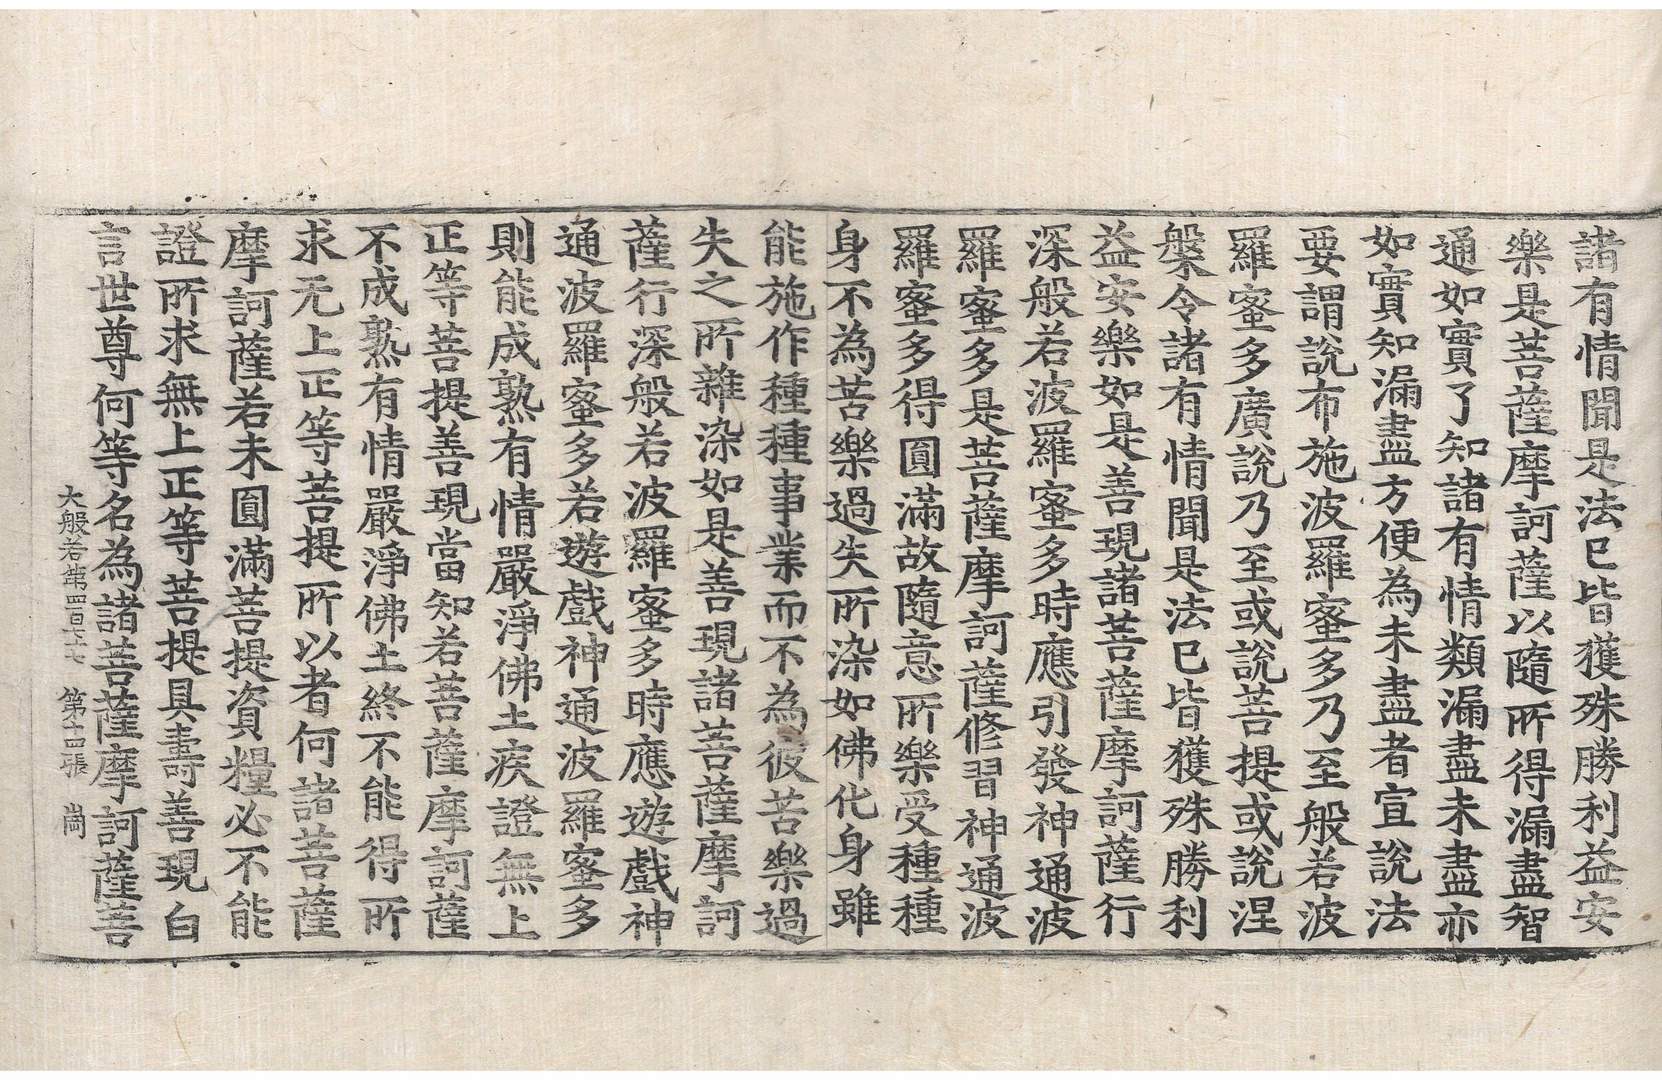 諸有情聞是法已皆獲殊勝利益安
樂是菩薩摩訶薩以隨所得漏盡智
通如實了知諸有情類漏盡未盡亦
如實知漏盡方便為未盡者宣說法
要謂說布施波羅蜜多乃至般若波
羅蜜多廣說乃至或說菩提或說涅
槃令諸有情聞是法已皆獲殊勝利
益安樂如是善現諸菩薩摩訶薩行
深般若波羅蜜多時應引發神通波
羅蜜多是菩薩摩訶薩修習神通波
羅蜜多得圓滿故隨意所樂受種種
身不為苦樂過失所染如佛化身雖
能施作種種事業而不為彼苦樂過
失之所雜染如是善現諸菩薩摩訶
薩行深般若波羅蜜多時應遊戲神
通波羅蜜多若遊戲神通波羅蜜多
則能成熟有情嚴淨佛土疾證無上
正等菩提善現當知若菩薩摩訶薩
不成熟有情嚴淨佛土終不能得所
求无上正等菩提所以者何諸菩薩
摩訶薩若未圓滿菩提資糧必不能
證所求無上正等菩提具壽善現白
言世尊何等名為諸菩薩摩訶薩菩
大般若第四百六十七 第十四張 崗